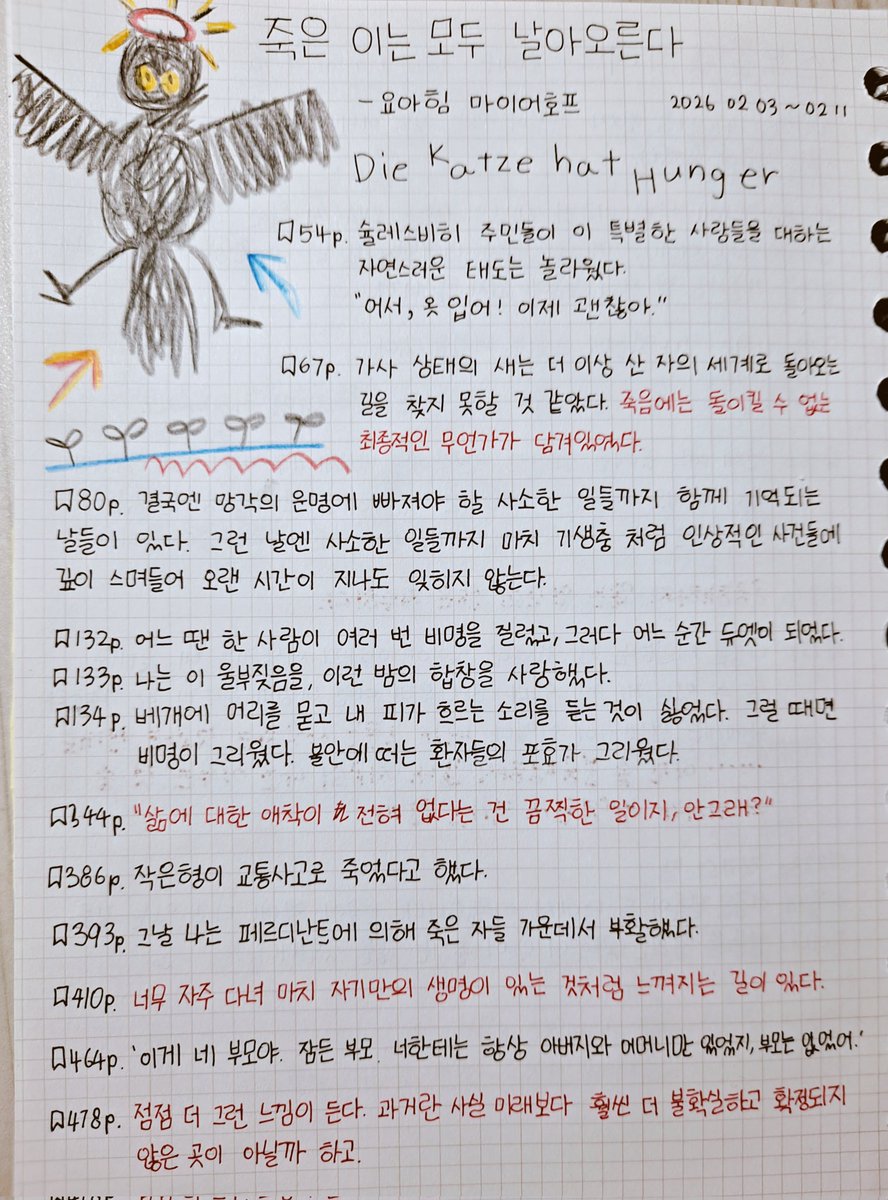 죽은 이는 모두 날아오른다
- 요아힘 마이어호프 2026 02 03 ~ 02 11
Die Katze hat Hunger
54p. 슐레스비히 주민들이 이 특별한 사람들을 대하는
자연스러운 태도는 놀라웠다.
"어서, 옷 입어! 이제 괜찮아."
67p. 가사 상태의 새는 더 이상 산 자의 세계로 돌아오는
길을 찾지 못할 것 같았다. 죽음에는 돌이킬 수 없는
최종적인 무언가가 담겨있었다.
80p. 결국엔 망각의 운명에 빠져야 할 사소한 일들까지 함께 기억되는
날들이 있다. 그런 날엔 사소한 일들까지 마치 기생충 처럼 인상적인 사건들에
깊이 스며들어 오랜 시간이 지나도 잊히지 않는다.
132p. 어느 땐 한 사람이 여러 번 비명을 질렀고, 그러다 어느 순간 듀엣이 되었다.
133p. 나는 이 울부짖음을, 이런 밤의 합창을 사랑했다.
134p. 베개에 머리를 묻고 내 피가 흐르는 소리를 듣는 것이 싫었다. 그럴 때면
비명이 그리웠다. 불안에 떠는 환자들의 포효가 그리웠다.
344p. "삶에 대한 애착이 전혀 없다는 건 끔찍한 일이지, 안그래?"
386p. 작은형이 교통사고로 죽었다고 했다.
393p. 그날 나는 페르디난트에 의해 죽은 자들 가운데서 부활했다.
410p. 너무 자주 다녀 마치 자기만의 생명이 있는 것처럼 느껴지는 길이 있다.
464p. '이게 네 부모야. 잠든 부모. 너한테는 항상 아버지와 어머니만 있었지, 부모는 없었어.'
478p. 점점 더 그런 느낌이 든다. 과거란 사실 미래보다 훨씬 더 불확실하고 확정되지
않은 곳이 아닐까 하고.